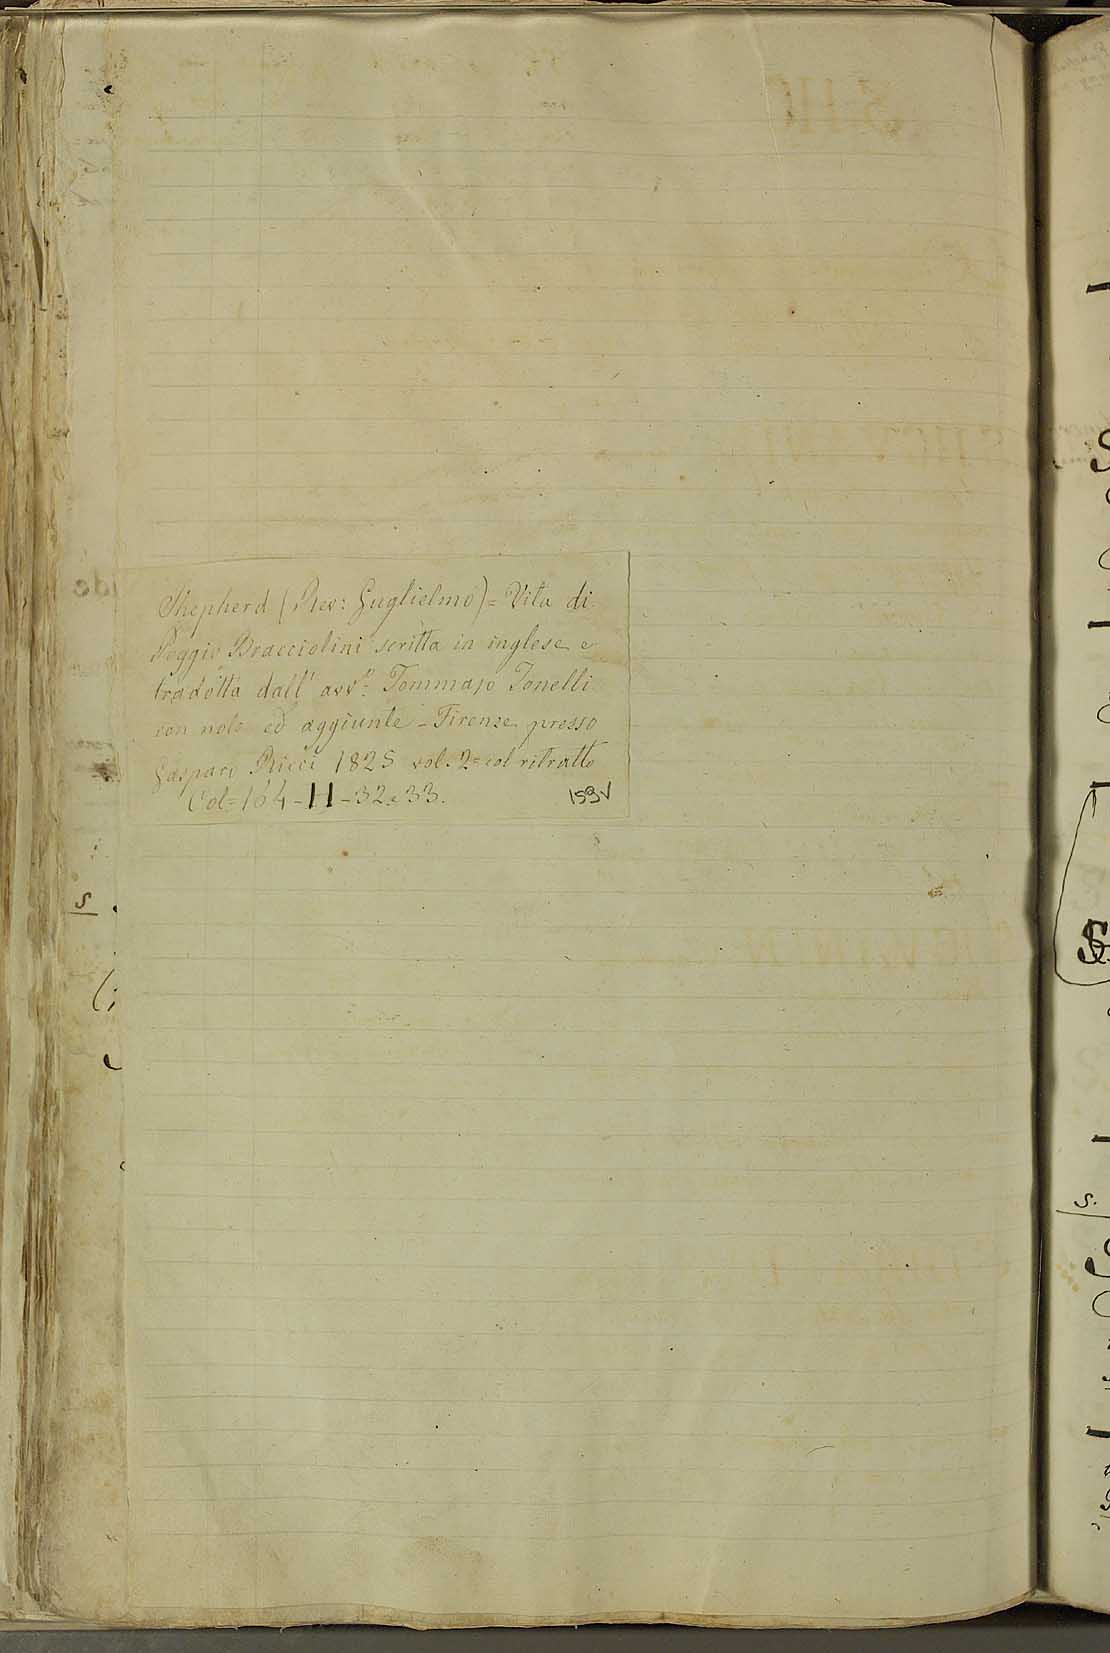 Shepherd (Rev: Guglielmo) = Vita di
Poggio Bracciolini scritta in inglese e
tradotta dall' avvº: Tommaso Tonelli
con note ed aggiunte - Firenze presso
Gaspare Ricci 1825 vol. 2 = col ritratto
Col = 164 - II - 32 e 33.
159v
S
S.